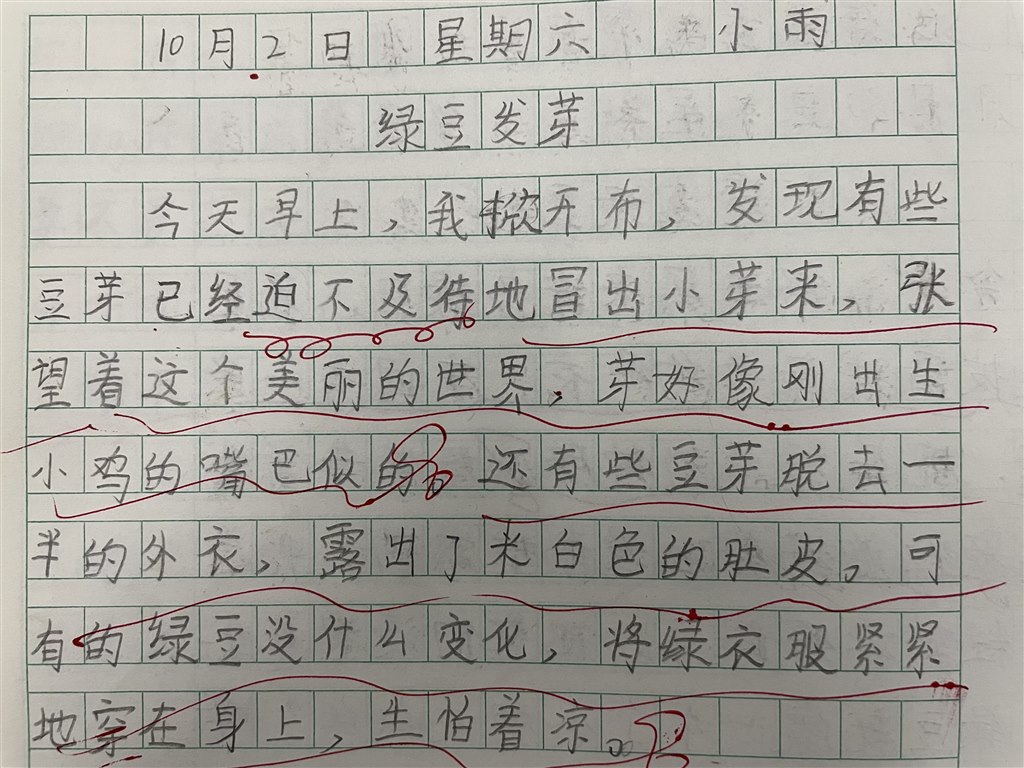 10月2日 星期六 小雨
绿豆发芽
今天早上,我掀开布,发现有些
豆芽已经迫不及待地冒出小芽来,张
望着这个美丽的世界,芽好像刚出生
小鸡的嘴巴似的。还有些豆芽脱去一
半的外衣,露出了米白色的肚皮。可
有的绿豆没什么变化,将绿衣服紧紧
地穿在身上,生怕着凉。